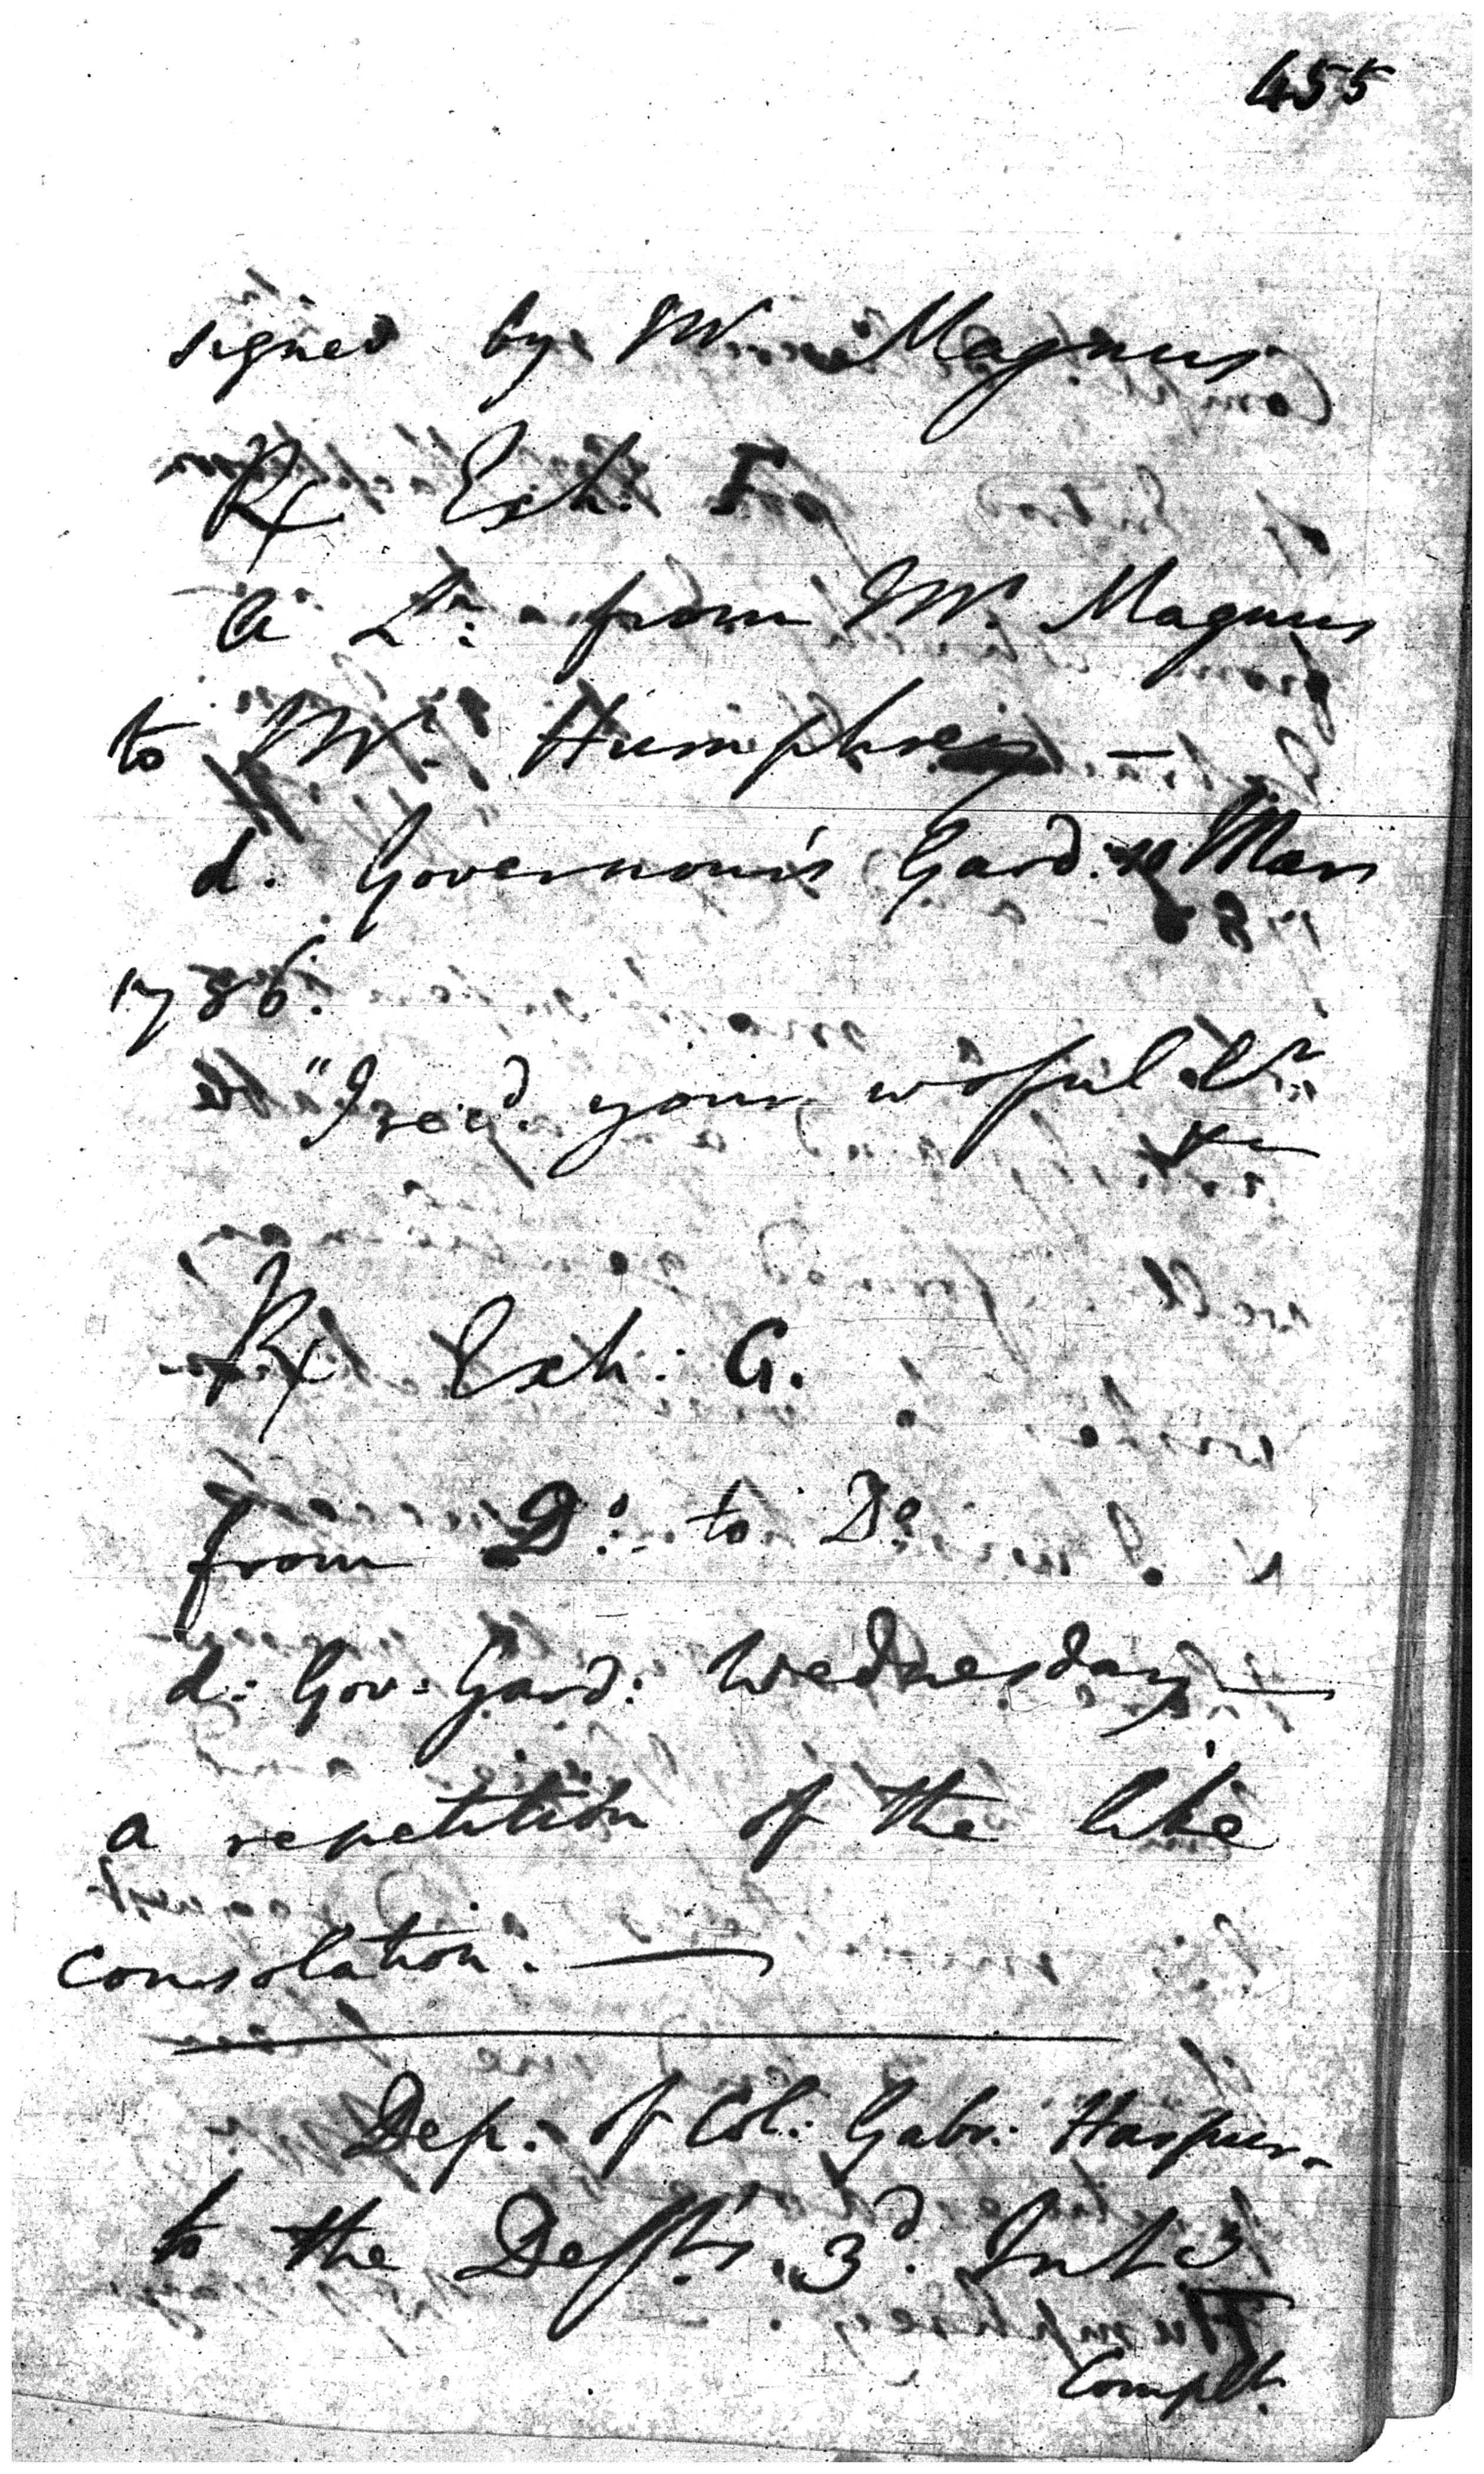 455
signed by Mr. Magnus
Rx Exh: I
a Lr: from Mr. Magnus
to Mr. Humphreys —
d. Governour's Gard: 10 Mars
1786.
"I recd. your woful Lr:
&c
Rx Exh: G.
from Do: to Do.
d: Gov: Gard: Wednesday —
a repetition of the like
consolation. —
Dep. of Col: Gabr: Harper.
to the Defts. 3d. Int:
Complt.